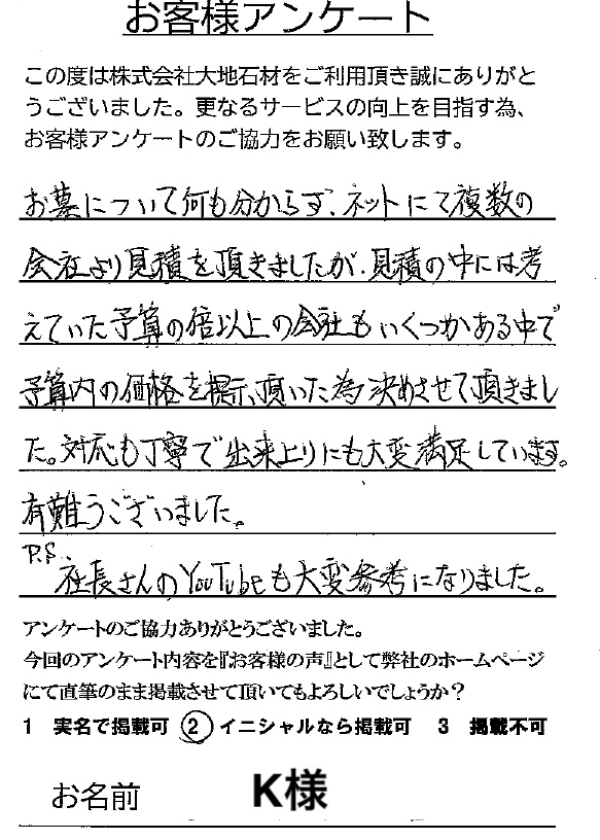 お客様アンケート
この度は株式会社大地石材をご利用頂き誠にありがと
うございました。更なるサービスの向上を目指す為、
お客様アンケートのご協力をお願い致します。
お墓について何も分からず、ネットにて複数の
会社より見積を頂きましたが、見積の中には考
えていた予算の倍以上の会社もいくつかある中で
予算内の価格を提示頂いた為決めさせて頂きまし
た。対応も丁寧で出来上りにも大変満足しています。
有難うございました。
P.S.
社長さんのYouTubeも大変参考になりました。
アンケートのご協力ありがとうございました。
今回のアンケート内容を『お客様の声』として弊社のホームページ
にて直筆のまま掲載させて頂いてもよろしいでしょうか？
1 実名で掲載可 2 イニシャルなら掲載可 3 掲載不可
お名前 K様